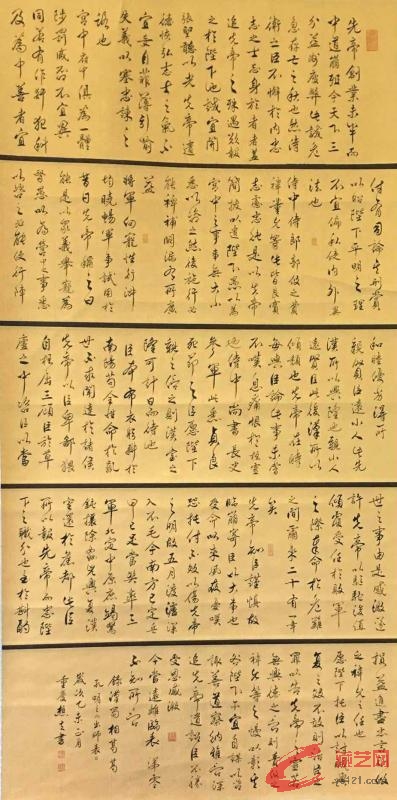 先帝創業未半而
中道崩殂今天下三
分益州疲弊此誠危
急存亡之秋也然侍
衛之臣不懈於內忠
志之士忘身於者蓋
追先帝之殊遇欲報
之於陛下也誠宜開
張聖聽以光先帝遺
德恢弘志士之氣不
宜妄自菲薄引喻
失義以塞忠諫之
路也
宮中府中俱為一體
陟罰臧否不宜異
同若有作奸犯科
及為忠善者宜
付有司論其刑賞
以昭陛下平明之理
不宜偏私使內外異
法也
侍中侍郎郭攸之費
禕董允等此皆良實
志慮忠純是以先帝
簡拔以遺陛下愚以為
宮中之事事無大小
悉以咨之然後施行必
能裨補闕漏有所廣
益
將軍向寵性行淑
均曉暢軍事試用於
昔日先帝稱之曰
能是以眾議舉寵為
督愚以為營中之事悉
以咨之必能使行陣
和睦優劣得所
親賢臣遠小人此先
漢所以興隆也親小人
遠賢臣此後漢所以
傾頹也先帝在時
每與臣論此事未嘗
不嘆息痛恨於桓靈
也侍中尚書長史
參軍此悉貞良
死節之臣願陛下
親之信之則漢室之
隆可計日而待也
臣本布衣躬耕於
南陽苟全性命於亂
世不求聞達於諸侯
先帝不以臣卑鄙猥
自枉屈三顧臣於草
廬之中咨臣以當
世之事由是感激遂
許先帝以驅馳後值
傾覆受任於敗軍
之際奉命於危難
之間爾來二十有一年
矣
先帝知臣謹慎故
臨崩寄臣以大事也
受命以來夙夜憂嘆
恐托付不效以傷先帝
之明故五月渡瀘深
入不毛今南方已定兵
甲已足當獎率三
軍北定中原庶竭駑
鈍攘除姦凶興復漢
室還於舊都此臣
所以報先帝而忠陛
下之職分也至於斟酌
損益進盡忠言則攸
之禕允之任也
願陛下托臣以討賊興
復之效不效則治臣之
罪以告先帝之靈若
無興德之言則責攸之
禕允等之慢以彰其咎
陛下亦宜自謀以咨
諏善道察納雅言深
追先帝遺詔臣不勝
受恩感激
今當遠離臨表涕零
不知所言
錄漢蜀相諸葛
孔明之出師表
歲次乙未正月
重慶書
艺网